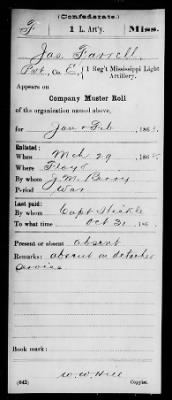 (Confederate.)
F 1 L. Art'y. Miss.
Jas. Farrell
Pvt., Co. E, 1 Reg't Mississippi Light
Artillery.
Appears on
Company Muster Roll
of the organization named above,
for Jan & Feb, 186
Enlisted:
When Mch 29, 186
Where Floyd
By whom J. M. Berry
Period War
Last paid:
By whom Capt
To what time Oct 31, 186
Present or absent absent
Remarks: absent on detached
service
Book mark:
W. W. Hill
(642) Copyist.